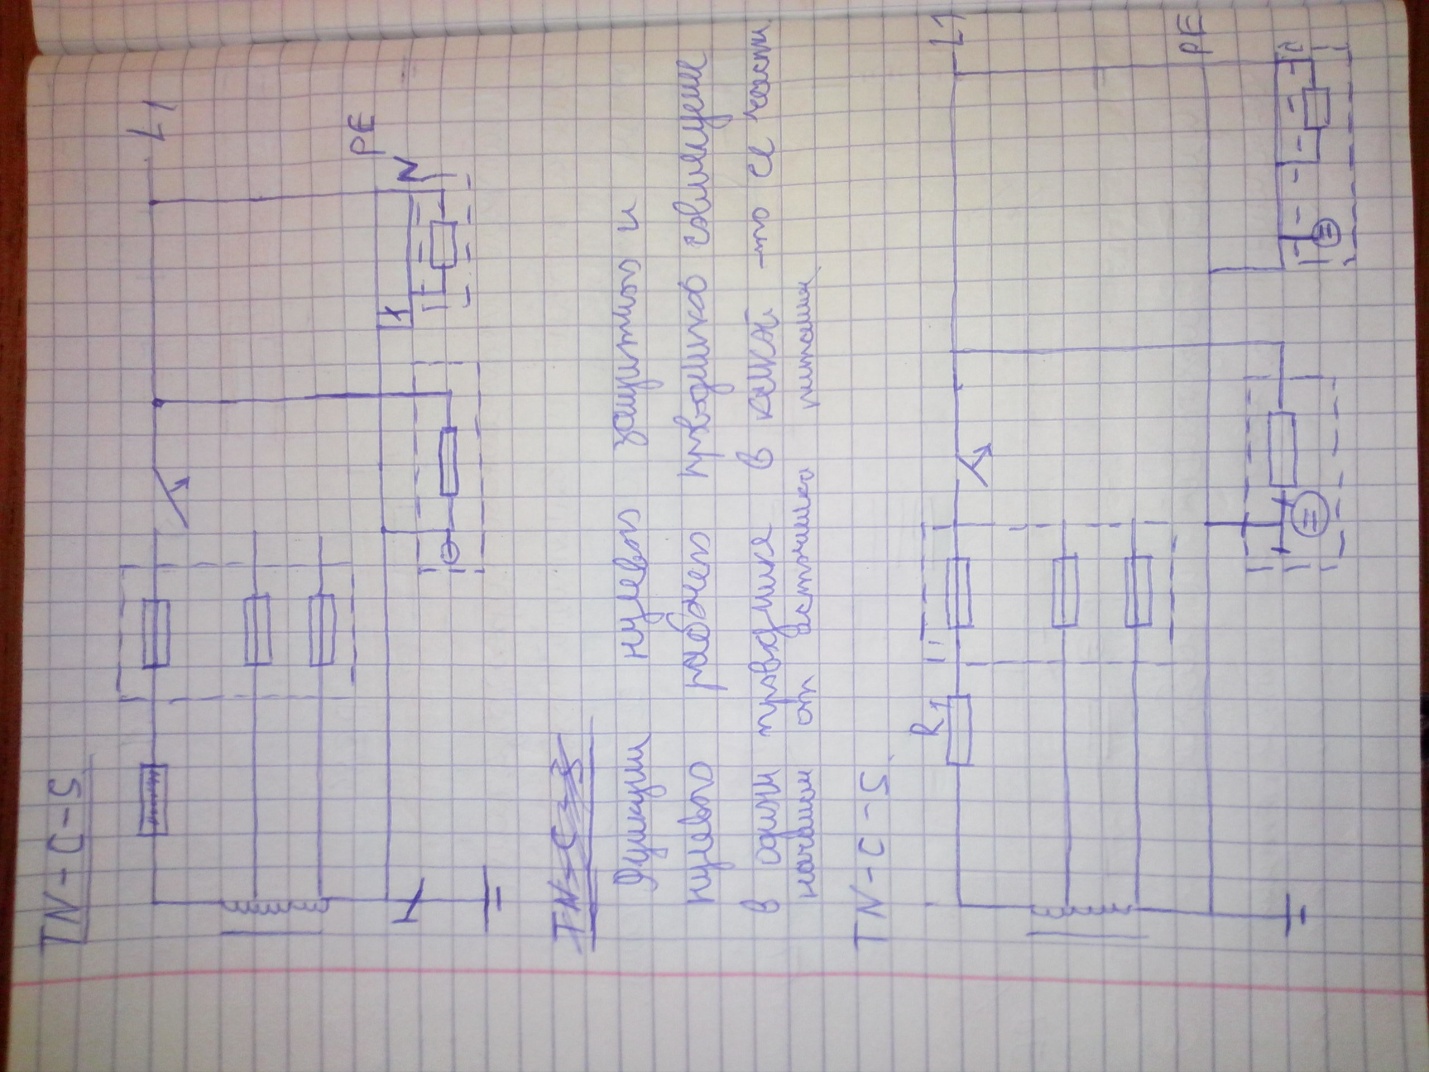 TN-C-S
L1
PE
N
TN-C-S
Функции нулевого защитного и
нулевого рабочего проводников совмещены
в одном проводнике в какой-то её части
начиная от источника питания
TN-C-S
R1
L1
PE